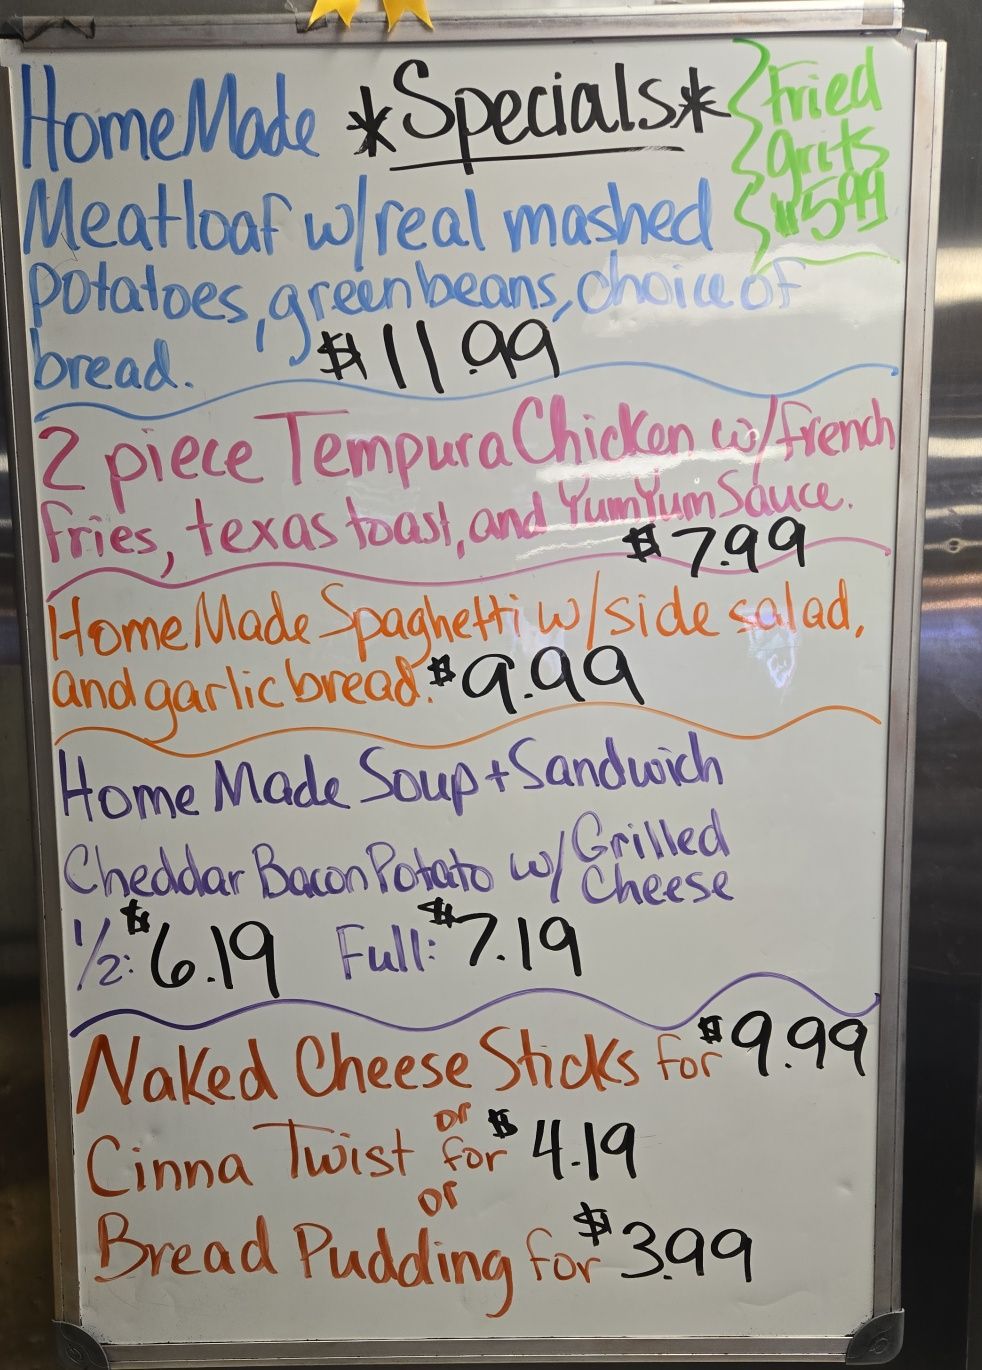 HomeMade *Specials*
Fried
grits
$5.99
Meatloaf w/real mashed
potatoes, greenbeans, choice of
bread. $11.99
2 piece Tempura Chicken w/French
fries, texas toast, and YumYum Sauce.
$7.99
HomeMade Spaghetti w/side salad,
and garlic bread. $9.99
Home Made Soup + Sandwich
Cheddar Bacon Potato w/ Grilled
Cheese
1/2: $6.19 Full: $7.19
Naked Cheese Sticks for $9.99
or
Cinna Twist for $4.19
or
Bread Pudding for $3.99